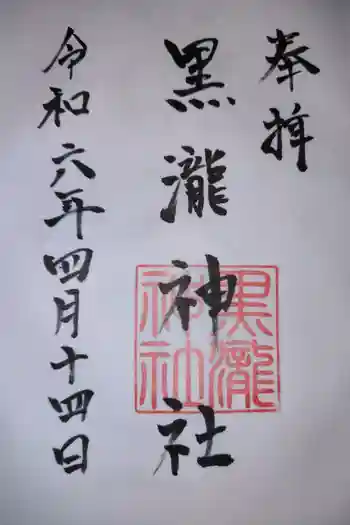 奉拝
黒瀧神社
黒瀧神社
令和六年四月十四日